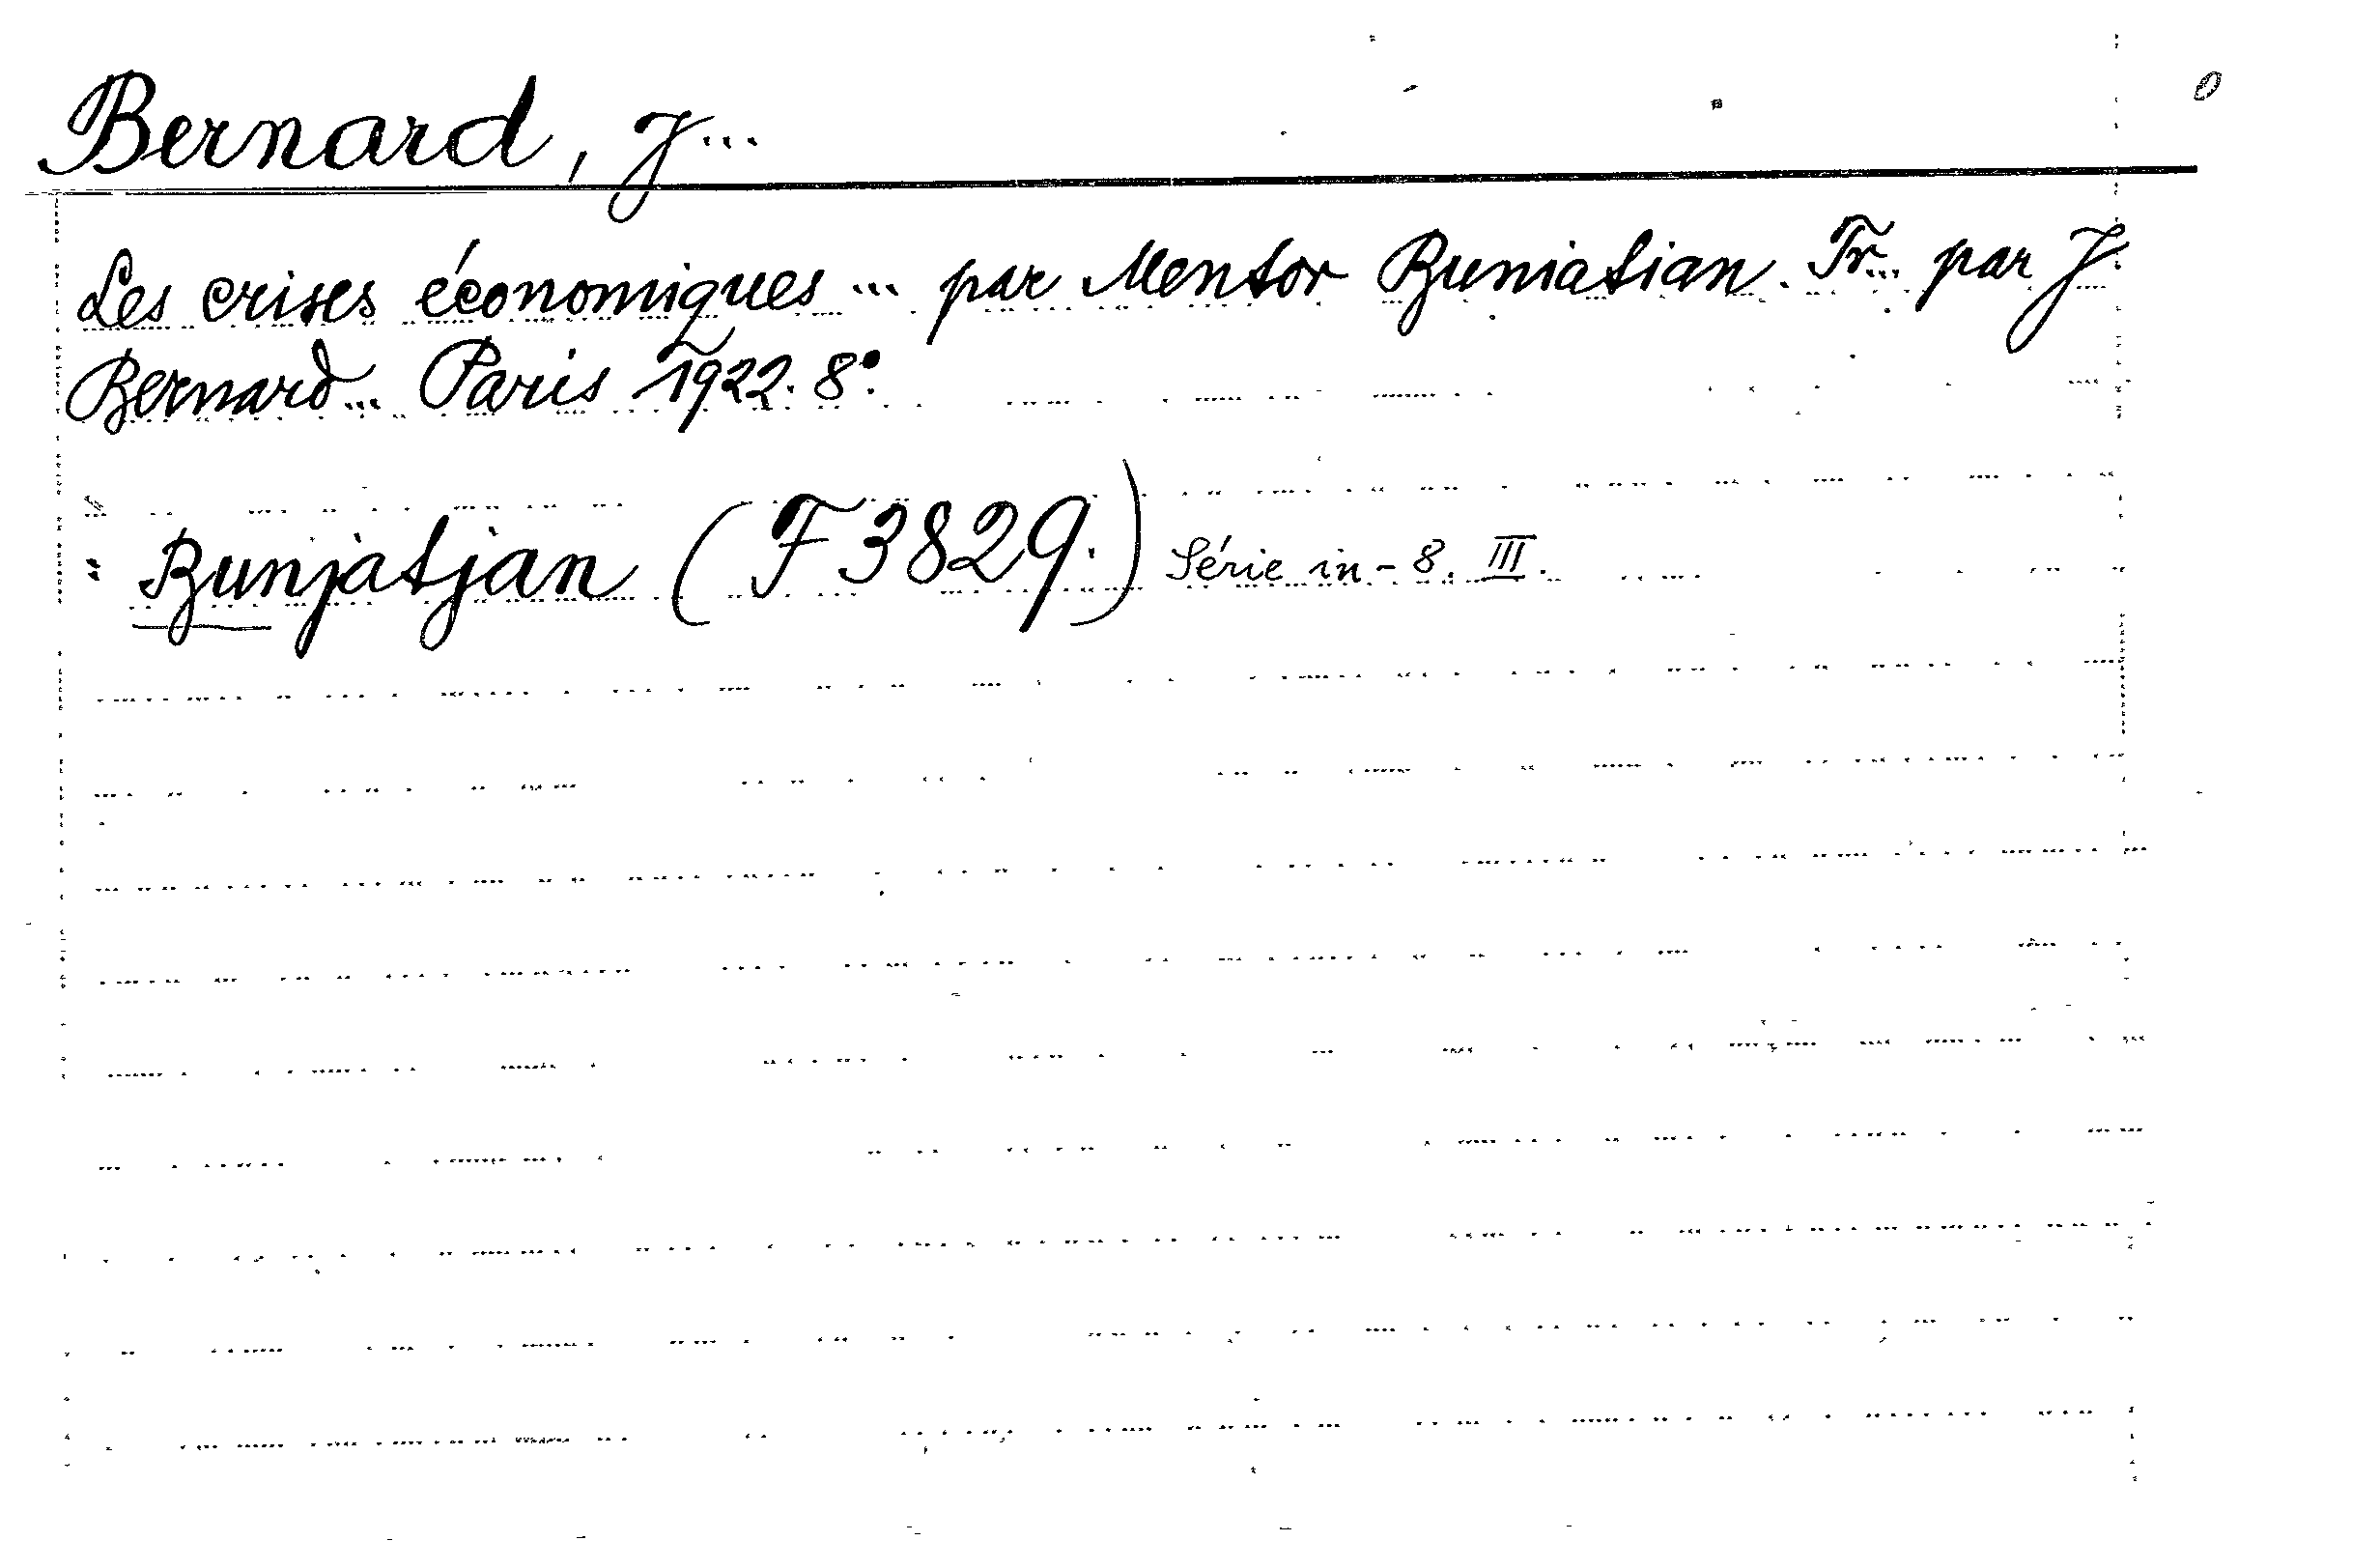 Bernard, J...
Les crises économiques ... par Mentor Buniatian. Tr... par J.
Bernard... Paris 1922. 8°.
: Bunjatjan (F 3829.) Série in-8. III.